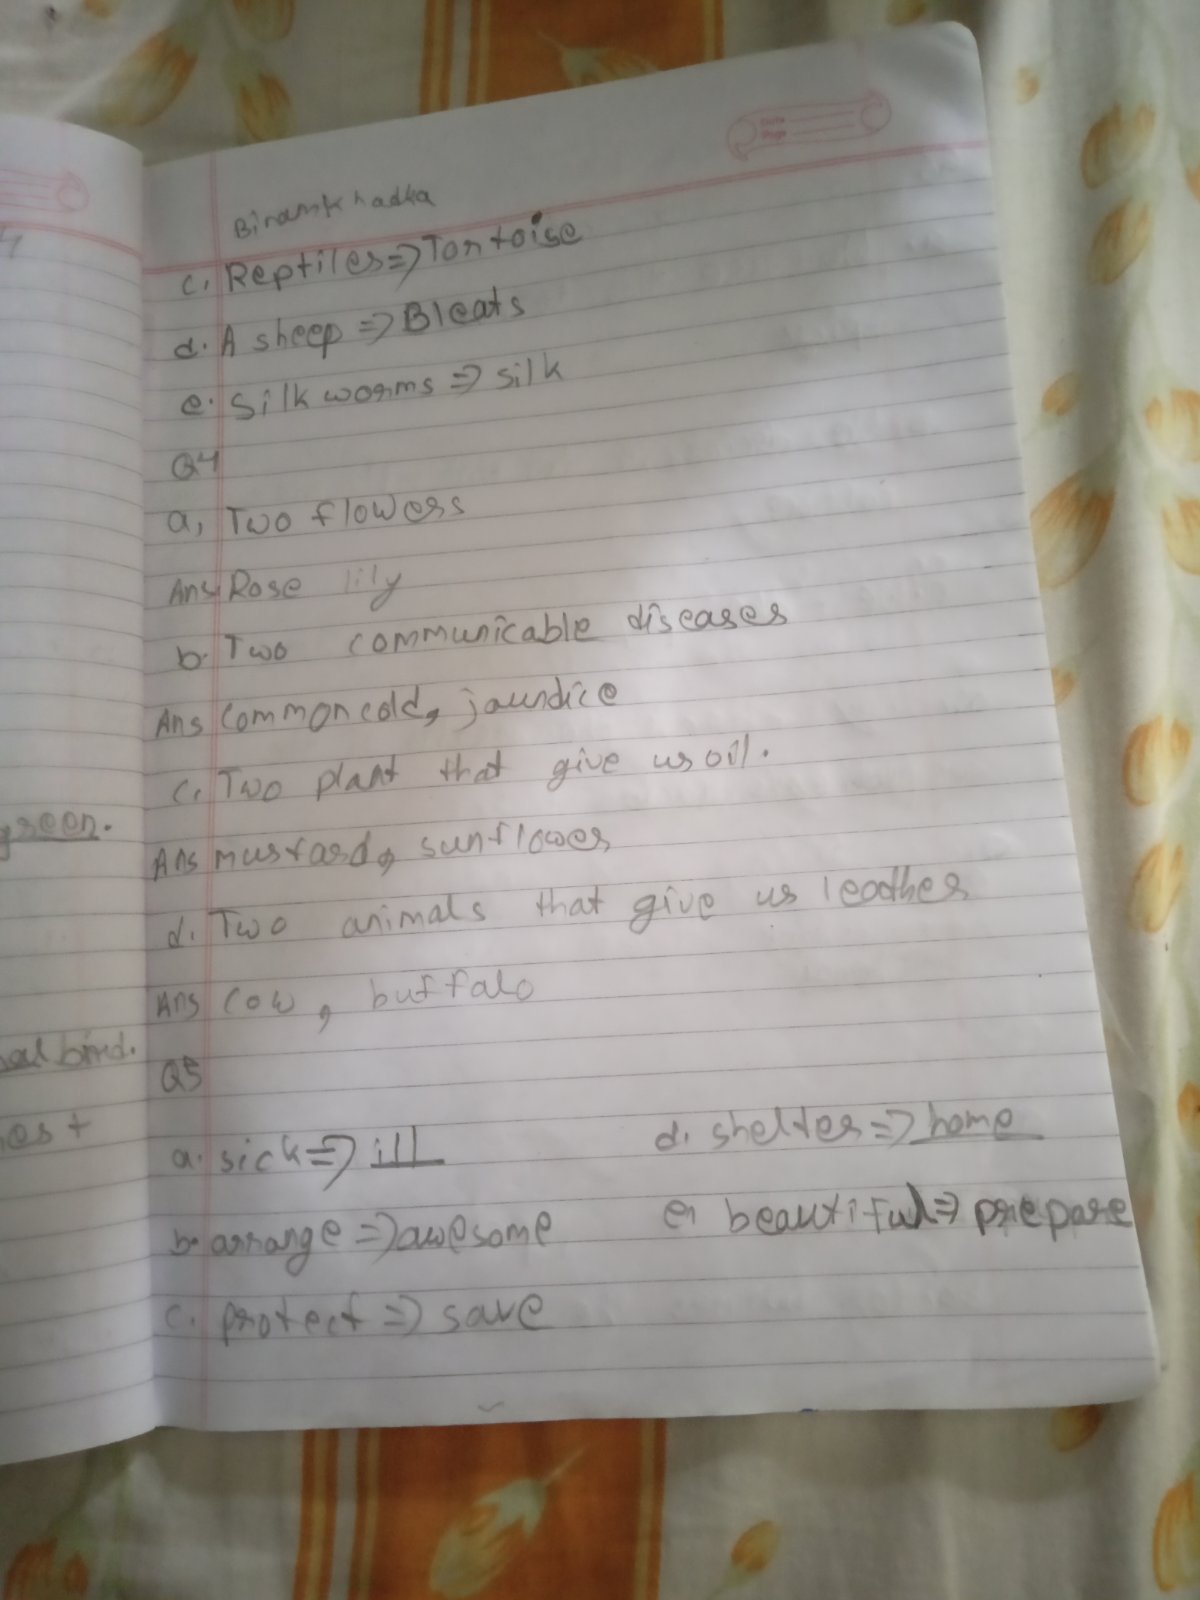 Date
Page
Biramkhadka
c. Reptiles => Tortoise
d. A sheep => Bleats
e. Silk worms => silk
Q4
a, Two flowers
Ans Rose lily
b. Two communicable diseases
Ans Common cold, jaundice
c. Two plant that give us oil.
Ans mustard, sunflower
d. Two animals that give us leather
Ans cow, buffalo
Q5
a. sick => ill
d. shelter => home
b. arrange => awesome
e. beautiful => prepare
c. protect => save
green.
bird.